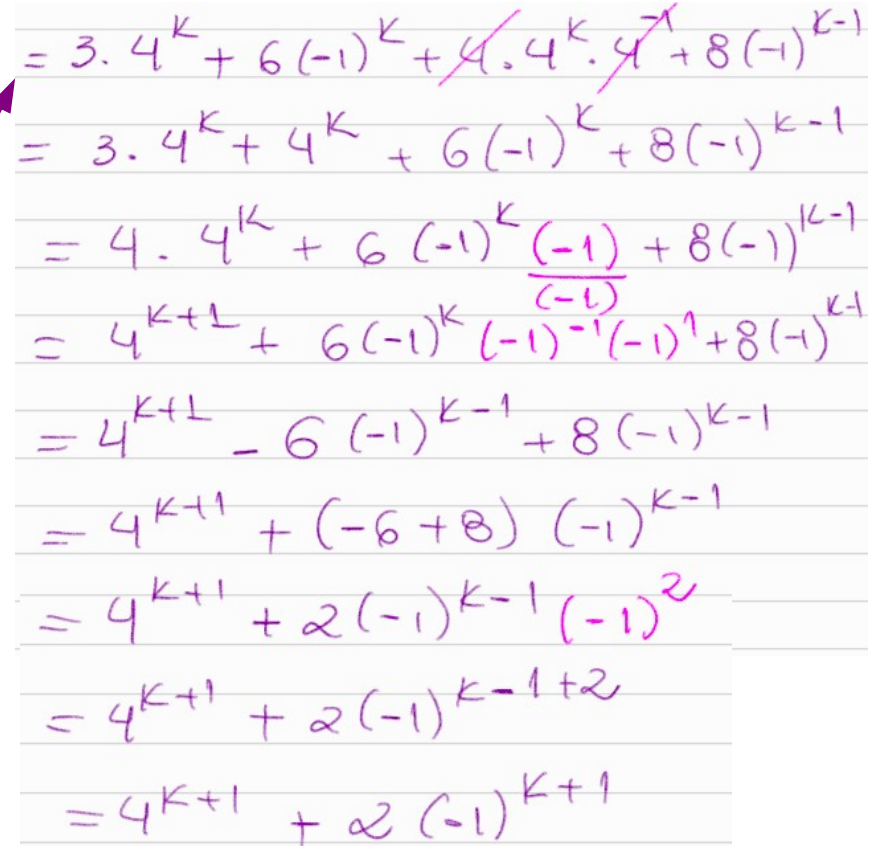 = 3 . 4^K + 6 (-1)^K + 4 . 4^K . 4^-1 + 8 (-1)^K-1
= 3 . 4^K + 4^K + 6 (-1)^K + 8 (-1)^K-1
= 4 . 4^K + 6 (-1)^K (-1)/(-1) + 8 (-1)^K-1
= 4^K+1 + 6 (-1)^K (-1)^-1 (-1)^1 + 8 (-1)^K-1
= 4^K+1 - 6 (-1)^K-1 + 8 (-1)^K-1
= 4^K+1 + (-6 + 8) (-1)^K-1
= 4^K+1 + 2 (-1)^K-1 (-1)^2
= 4^K+1 + 2 (-1)^K-1+2
= 4^K+1 + 2 (-1)^K+1